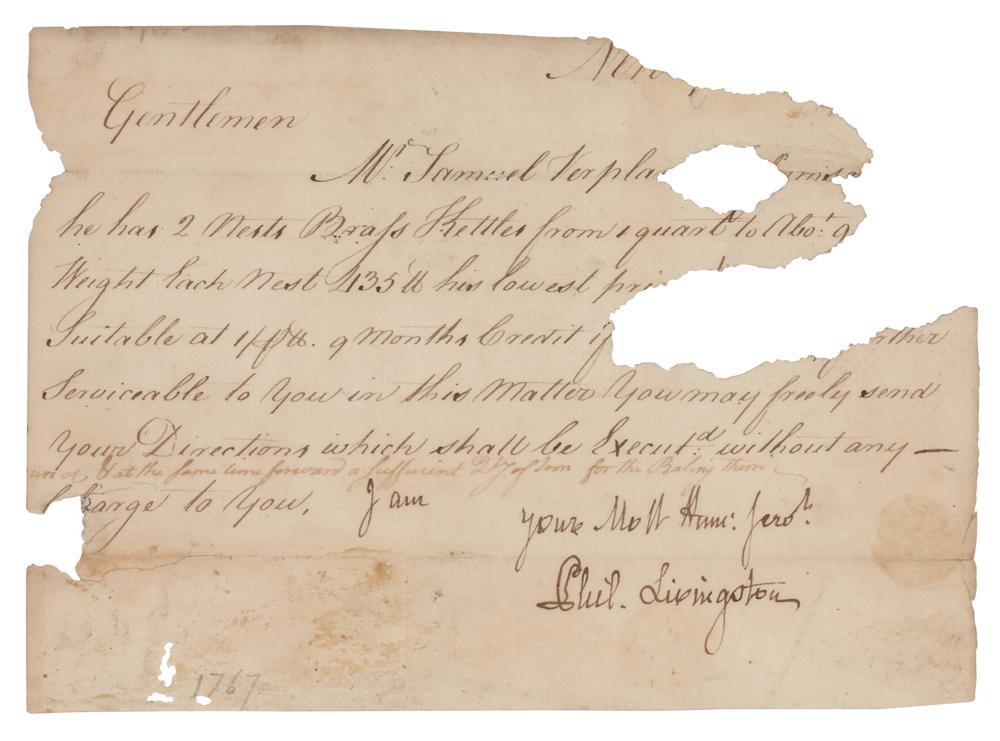 New
Gentlemen
Mr. Samuel Verpla
he has 2 Nests Brass Kettles from 1 quart to Abot. 9
Weight Each Nest 135 lb his lowest pri
Suitable at 9 Months Credit if rther
Serviceable to You in this Matter You may freely send
Your Directions which shall be Executd. without any —
& at the same time forward a sufficient of Iron for the Baling them
Charge to You, I am
youre Most Hum: Servt.
Phil. Livingston
1767